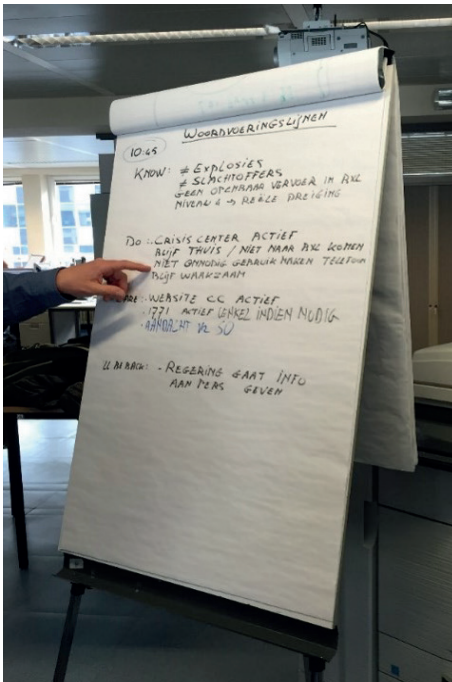 WOORDVOERINGSLIJNEN
10:45
KNOW: ≠ EXPLOSIES
≠ SLACHTOFFERS
GEEN OPENBAAR VERVOER IN BXL
NIVEAU 4 → REËLE DREIGING
DO: - CRISIS CENTER ACTIEF
BLIJF THUIS / NIET NAAR BXL KOMEN
NIET ONNODIG GEBRUIK MAKEN TELEFOON
BLIJF WAAKZAAM
RE: - WEBSITE CC ACTIEF
- 1771 ACTIEF (ENKEL INDIEN NODIG
- AANDACHT VR SO
- REGERING GAAT INFO
AAN PERS GEVEN